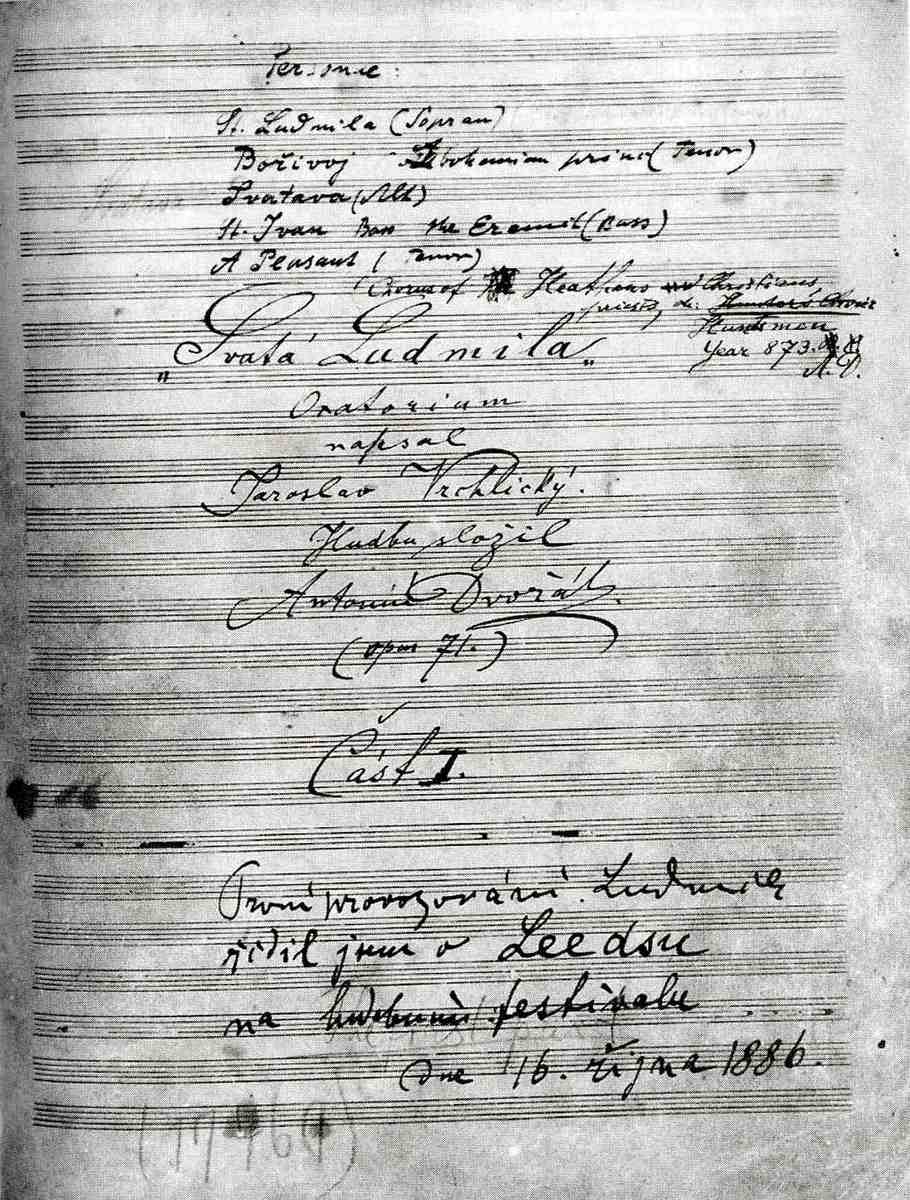 Persone:
St. Ludmila (Sopran)
Bořivoj bohemian prince (Tenor)
Svatava (Alt)
St. Ivan Bass the Eremit (Bass)
A Peasant (Tenor)
Chorus of Heathens and Christians,
priests, Hunters Chorus
Huntsmen
Year 873.
A. D.
„Svatá Ludmila„
Oratorium
napsal
Jaroslav Vrchlický.
Hudbu složil
Antonín Dvořák.
(opus 71.)
Část I.
První provozování Ludmily
řídil jsem v Leedsu
na hudebním festivalu
dne 16. října 1886.